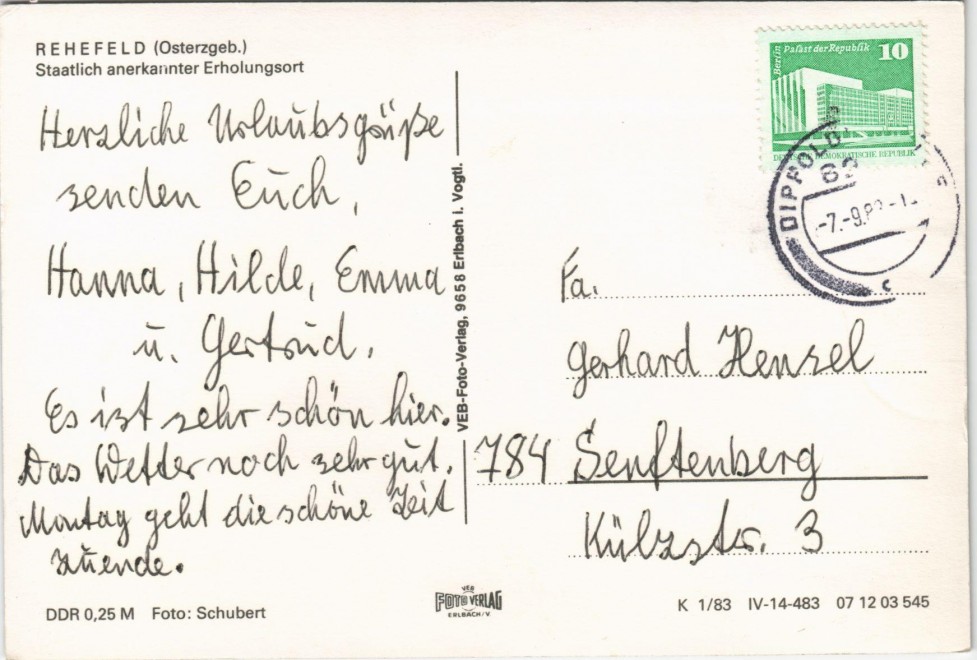 REHEFELD (Osterzgeb.)
Staatlich anerkannter Erholungsort
Herzliche Urlaubsgrüße
senden Euch,
Hanna, Hilde, Emma
u. Gertrud.
Es ist sehr schön hier.
Das Wetter noch sehr gut.
Montag geht die schöne Zeit
zuende.
DDR 0,25 M Foto: Schubert
VEB-Foto-Verlag, 9658 Erlbach i. Vogtl.
VEB
FOTO VERLAG
ERLBACH/V
Berlin Palast der Republik 10
DEUTSCHE DEMOKRATISCHE REPUBLIK
DIPPOLDI
-7.-9.83-1
c
Fa.
Gerhard Hensel
784 Senftenberg
Külzstr. 3
K 1/83 IV-14-483 07 12 03 545